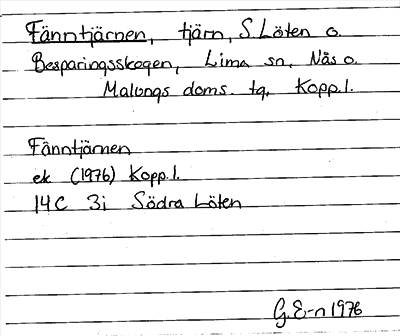 Fänntjärnen, tjärn, S. Löten o.
Besparingsskogen, Lima sn, Nås o.
Malungs doms. tg, Kopp. l.
Fänntjärnen
ek (1976) Kopp. l.
14C 3i Södra Löten
G. E-n 1976